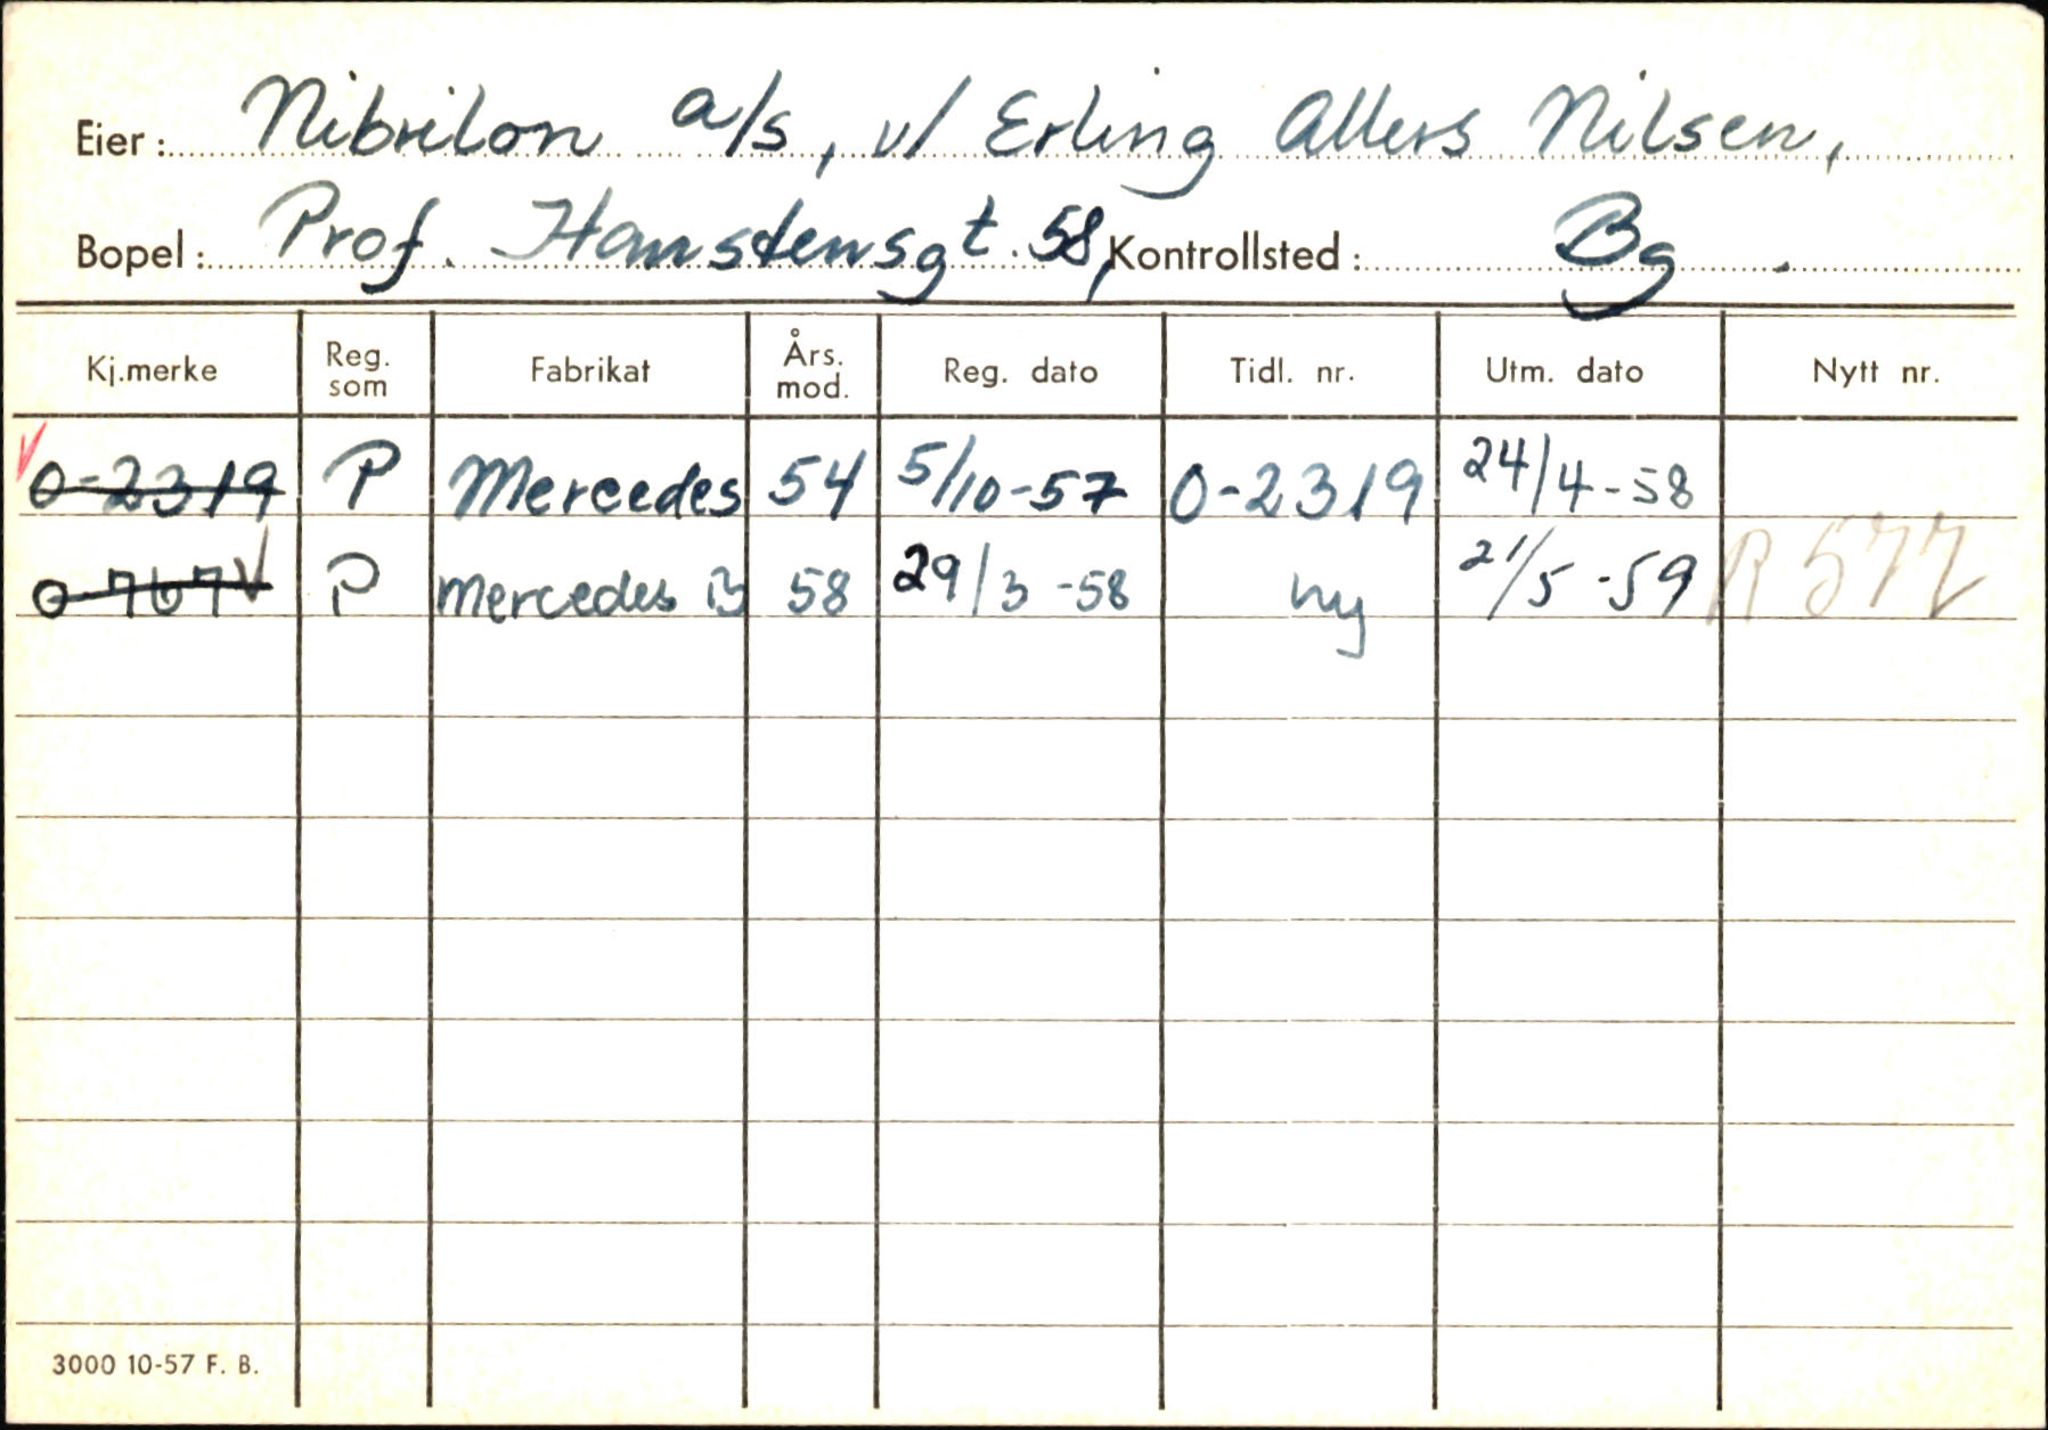 Eier: Nibrilon a/s, v/ Erling Allers Nilsen,
Bopel: Prof. Hanstensgt. 58, Kontrollsted: Bg.
Kj.merke Reg. som Fabrikat Års. mod. Reg. dato Tidl. nr. Utm. dato Nytt nr.
O-2319 P Mercedes 54 5/10-57 O-2319 24/4-58
O-7677 P Mercedes B 58 29/3-58 ny 21/5-59 R 577
3000 10-57 F. B.